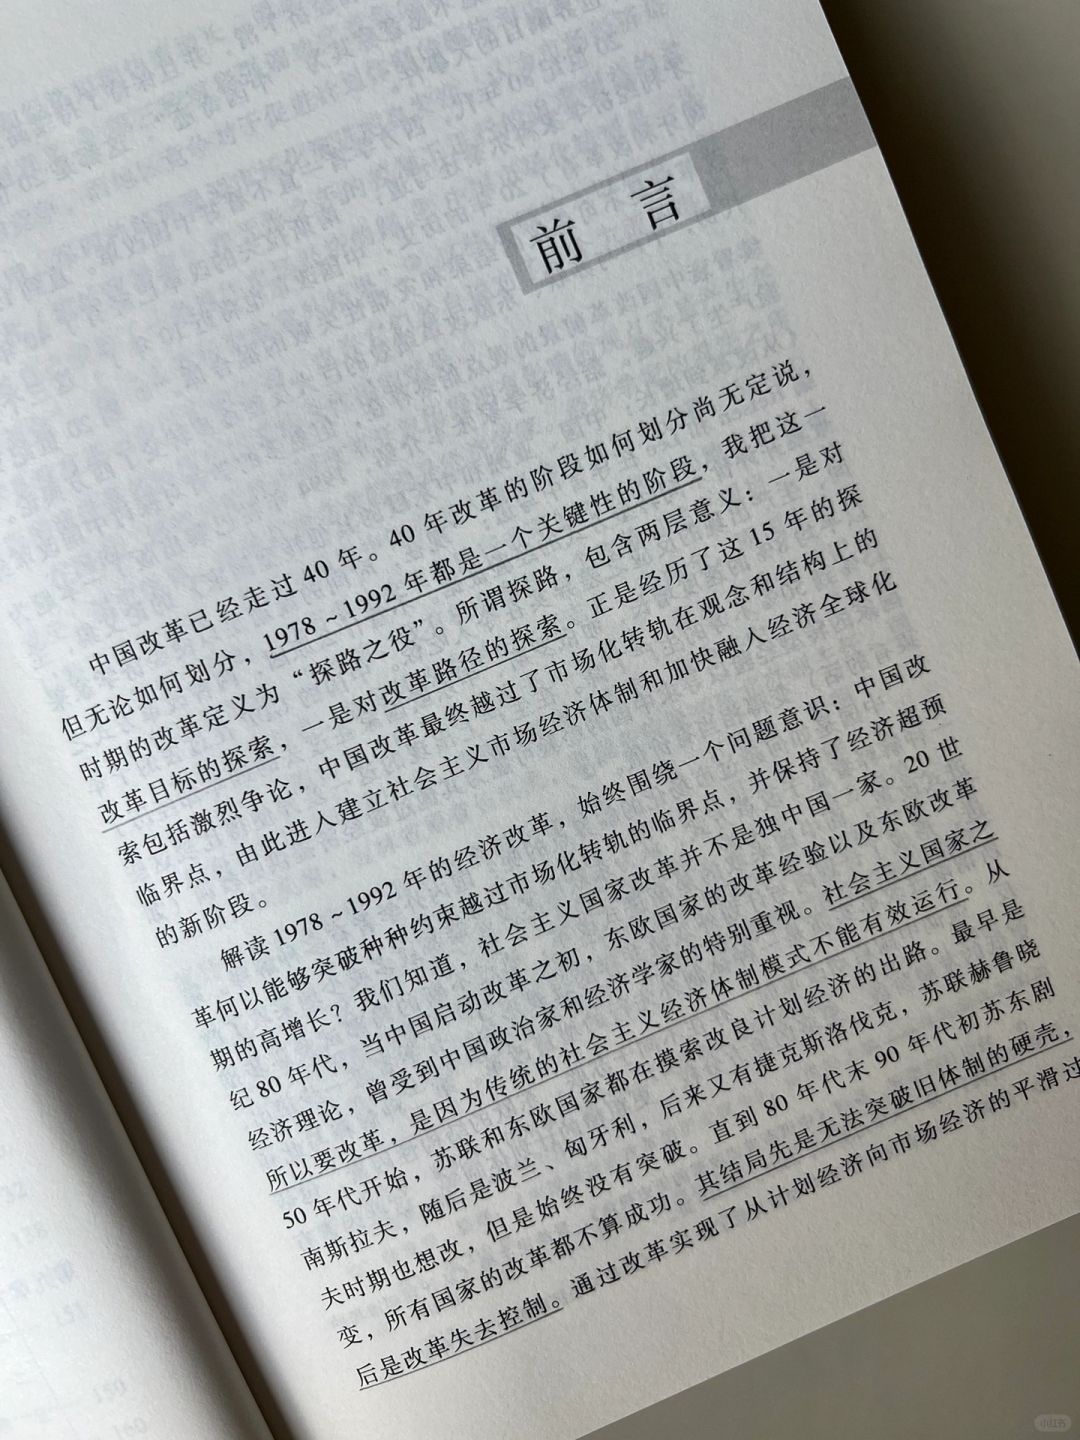 前言
中国改革已经走过 40 年。40 年改革的阶段如何划分尚无定说，
但无论如何划分，1978 ~ 1992 年都是一个关键性的阶段，我把这一
时期的改革定义为“探路之役”。所谓探路，包含两层意义：一是对
改革目标的探索，一是对改革路径的探索。正是经历了这 15 年的探
索包括激烈争论，中国改革最终越过了市场化转轨在观念和结构上的
临界点，由此进入建立社会主义市场经济体制和加快融入经济全球化
的新阶段。
解读 1978 ~ 1992 年的经济改革，始终围绕一个问题意识：中国改
革何以能够突破种种约束越过市场化转轨的临界点，并保持了经济超预
期的高增长？我们知道，社会主义国家改革并不是独中国一家。20 世
纪 80 年代，当中国启动改革之初，东欧国家的改革经验以及东欧改革
经济理论，曾受到中国政治家和经济学家的特别重视。社会主义国家之
所以要改革，是因为传统的社会主义经济体制模式不能有效运行。从
50 年代开始，苏联和东欧国家都在摸索改良计划经济的出路。最早是
南斯拉夫，随后是波兰、匈牙利，后来又有捷克斯洛伐克，苏联赫鲁晓
夫时期也想改，但是始终没有突破。直到 80 年代末 90 年代初苏东剧
变，所有国家的改革都不算成功。其结局先是无法突破旧体制的硬壳，
后是改革失去控制。通过改革实现了从计划经济向市场经济的平滑过
小红书